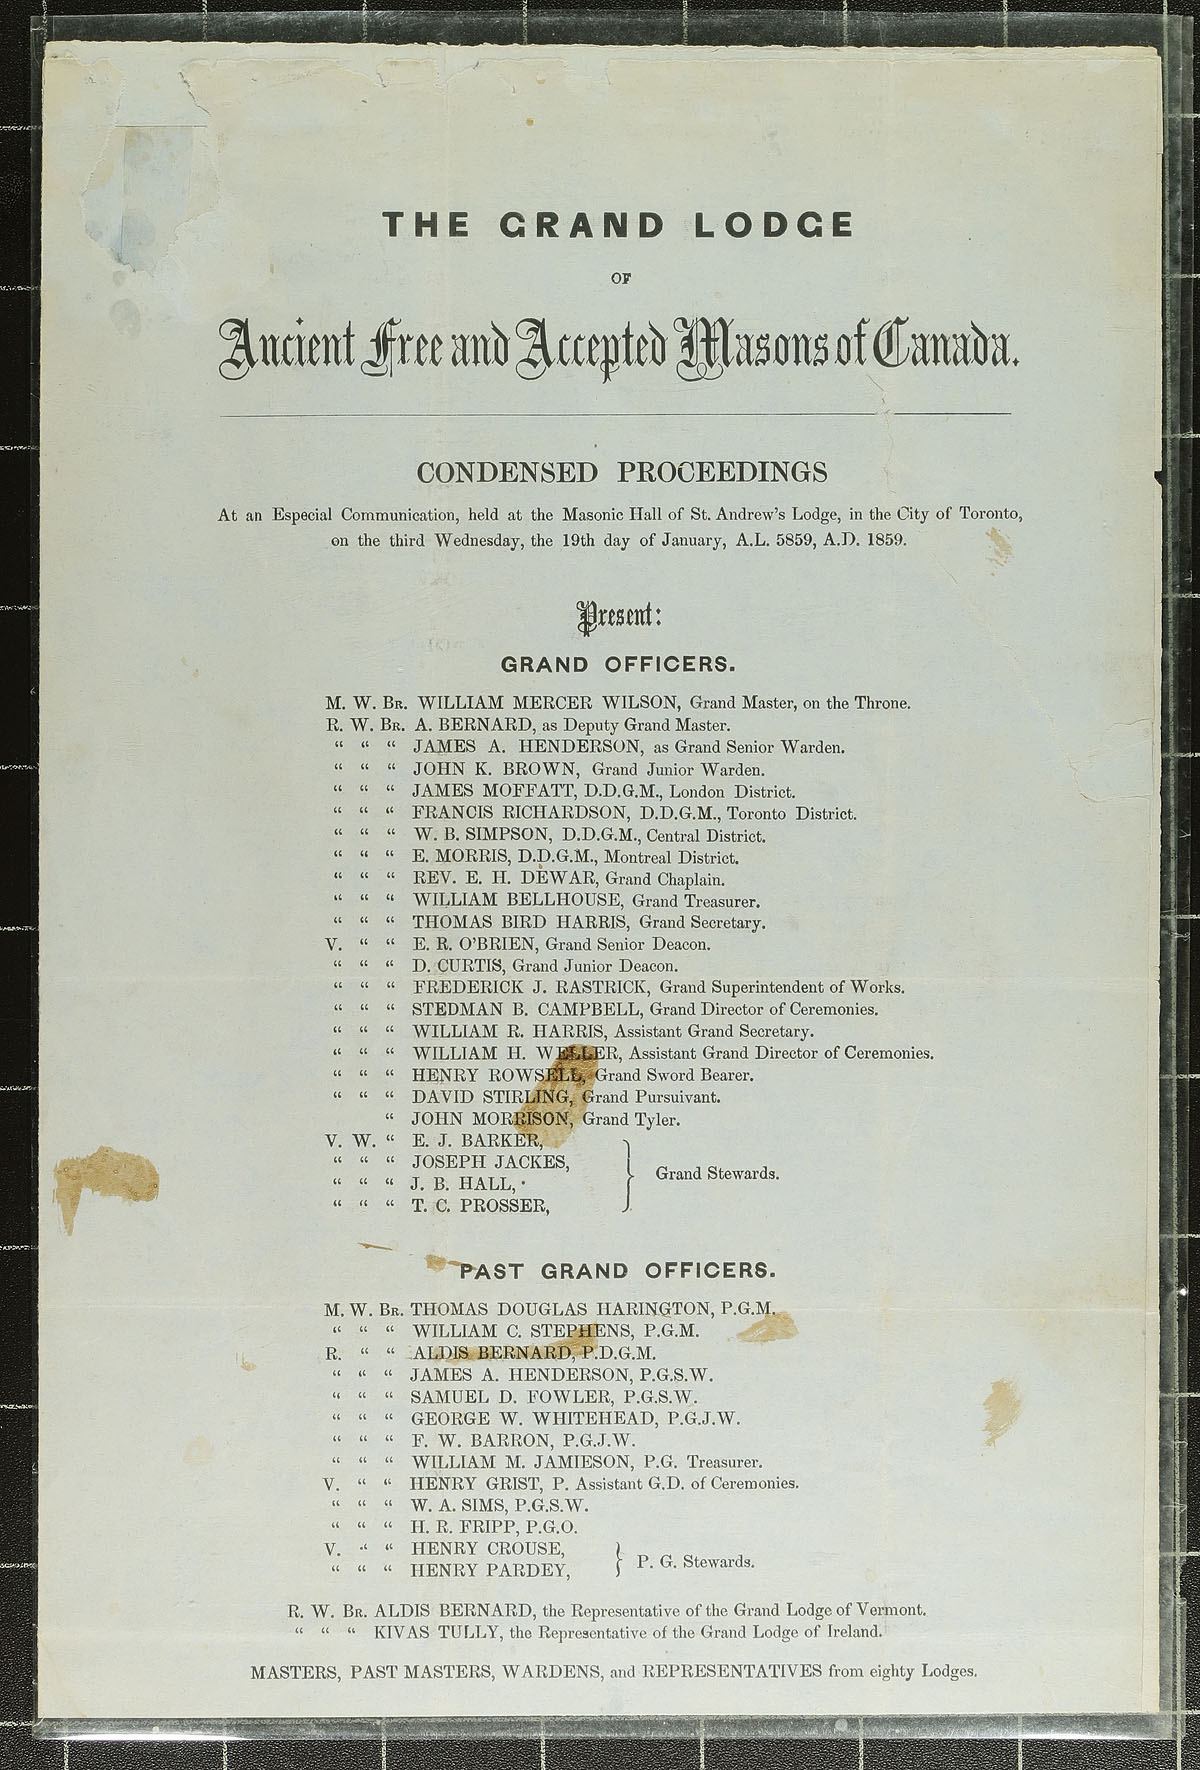 THE GRAND LODGE
OF
Ancient Free and Accepted Masons of Canada.
CONDENSED PROCEEDINGS
At an Especial Communication, held at the Masonic Hall of St. Andrew's Lodge, in the City of Toronto,
on the third Wednesday, the 19th day of January, A.L. 5859, A.D. 1859.
Present:
GRAND OFFICERS.
M. W. Br. WILLIAM MERCER WILSON, Grand Master, on the Throne.
R. W. Br. A. BERNARD, as Deputy Grand Master.
“ “ “ JAMES A. HENDERSON, as Grand Senior Warden.
“ “ “ JOHN K. BROWN, Grand Junior Warden.
“ “ “ JAMES MOFFATT, D.D.G.M., London District.
“ “ “ FRANCIS RICHARDSON, D.D.G.M., Toronto District.
“ “ “ W. B. SIMPSON, D.D.G.M., Central District.
“ “ “ E. MORRIS, D.D.G.M., Montreal District.
“ “ “ REV. E. H. DEWAR, Grand Chaplain.
“ “ “ WILLIAM BELLHOUSE, Grand Treasurer.
“ “ “ THOMAS BIRD HARRIS, Grand Secretary.
V. “ “ E. R. O'BRIEN, Grand Senior Deacon.
“ “ “ D. CURTIS, Grand Junior Deacon.
“ “ “ FREDERICK J. RASTRICK, Grand Superintendent of Works.
“ “ “ STEDMAN B. CAMPBELL, Grand Director of Ceremonies.
“ “ “ WILLIAM R. HARRIS, Assistant Grand Secretary.
“ “ “ WILLIAM H. WELLER, Assistant Grand Director of Ceremonies.
“ “ “ HENRY ROWSELL, Grand Sword Bearer.
“ “ “ DAVID STIRLING, Grand Pursuivant.
“ JOHN MORRISON, Grand Tyler.
V. W. “ E. J. BARKER,
“ “ “ JOSEPH JACKES,
Grand Stewards.
“ “ “ J. B. HALL,
“ “ “ T. C. PROSSER,
PAST GRAND OFFICERS.
M. W. Br. THOMAS DOUGLAS HARINGTON, P.G.M.
“ “ “ WILLIAM C. STEPHENS, P.G.M.
R. “ “ ALDIS BERNARD, P.D.G.M.
“ “ “ JAMES A. HENDERSON, P.G.S.W.
“ “ “ SAMUEL D. FOWLER, P.G.S.W.
“ “ “ GEORGE W. WHITEHEAD, P.G.J.W.
“ “ “ F. W. BARRON, P.G.J.W.
“ “ “ WILLIAM M. JAMIESON, P.G. Treasurer.
V. “ “ HENRY GRIST, P. Assistant G.D. of Ceremonies.
“ “ “ W. A. SIMS, P.G.S.W.
“ “ “ H. R. FRIPP, P.G.O.
V. “ “ HENRY CROUSE,
P. G. Stewards.
“ “ “ HENRY PARDEY,
R. W. Br. ALDIS BERNARD, the Representative of the Grand Lodge of Vermont.
“ “ “ KIVAS TULLY, the Representative of the Grand Lodge of Ireland.
MASTERS, PAST MASTERS, WARDENS, and REPRESENTATIVES from eighty Lodges.